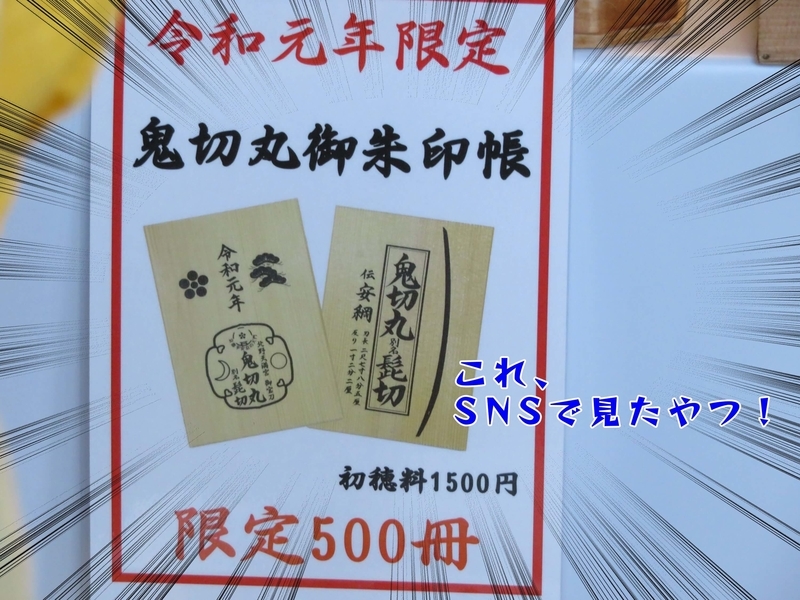 令和元年限定
鬼切丸御朱印帳
令和元年
北野天満宮 御宝刀
鬼切丸
別名
髭切
鬼切丸 別名 髭切
伝 安綱
刃長 二尺七寸八分五厘
反り 一寸二分二厘
これ、
SNSで見たやつ！
初穂料1500円
限定500冊